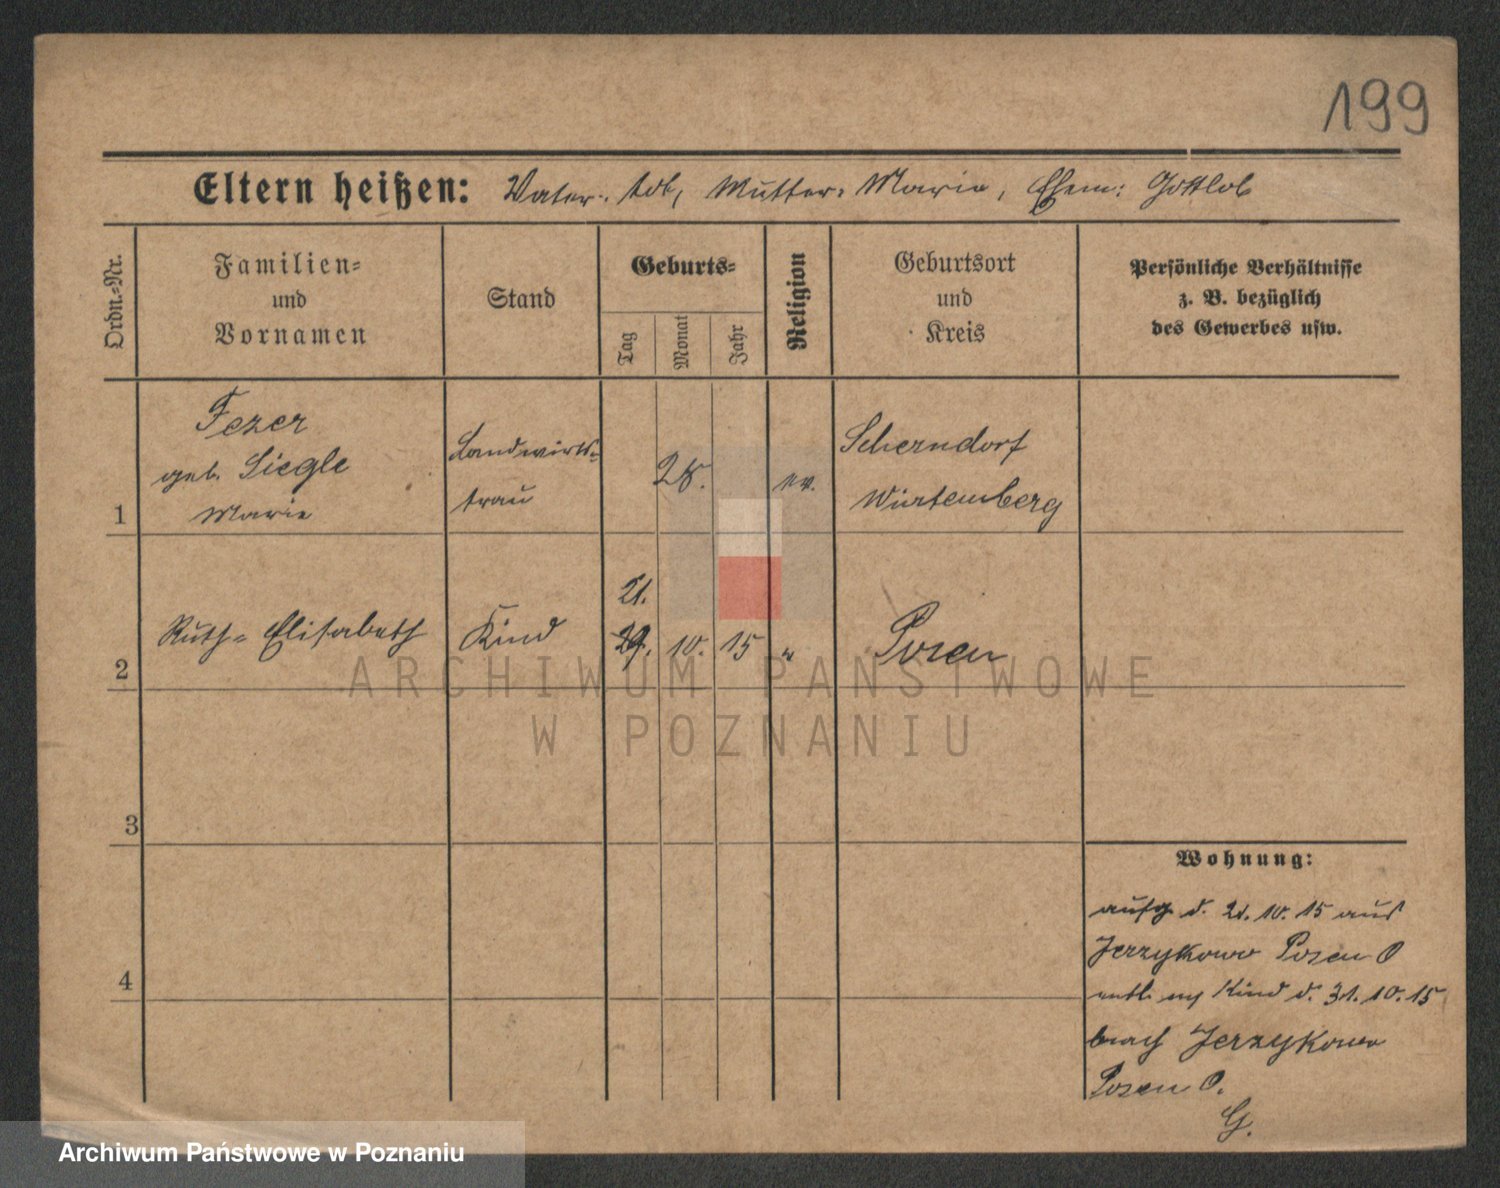 199
Eltern heißen: Vater: tot, Mutter: Marie, Ehem: Gottlob
Ordn.-Nr.
Familien-
und
Vornamen
Stand
Geburts-
Tag
Monat
Jahr
Religion
Geburtsort
und
Kreis
Persönliche Verhältnisse
z. B. bezüglich
des Gewerbes usw.
1
Fezer
geb. Siegle
Marie
Landwirts-
frau
28.
ev.
Schorndorf
Würtemberg
2
Ruth-Elisabeth
Kind
21.
29. 10. 15
"
Posen
3
4
Wohnung:
aufg d. 21. 10. 15 aus
Jerzykowo Posen O
entl. m Kind d. 31. 10. 15
nach Jerzykowo
Posen O.
G.
ARCHIWUM PAŃSTWOWE
W POZNANIU
Archiwum Państwowe w Poznaniu